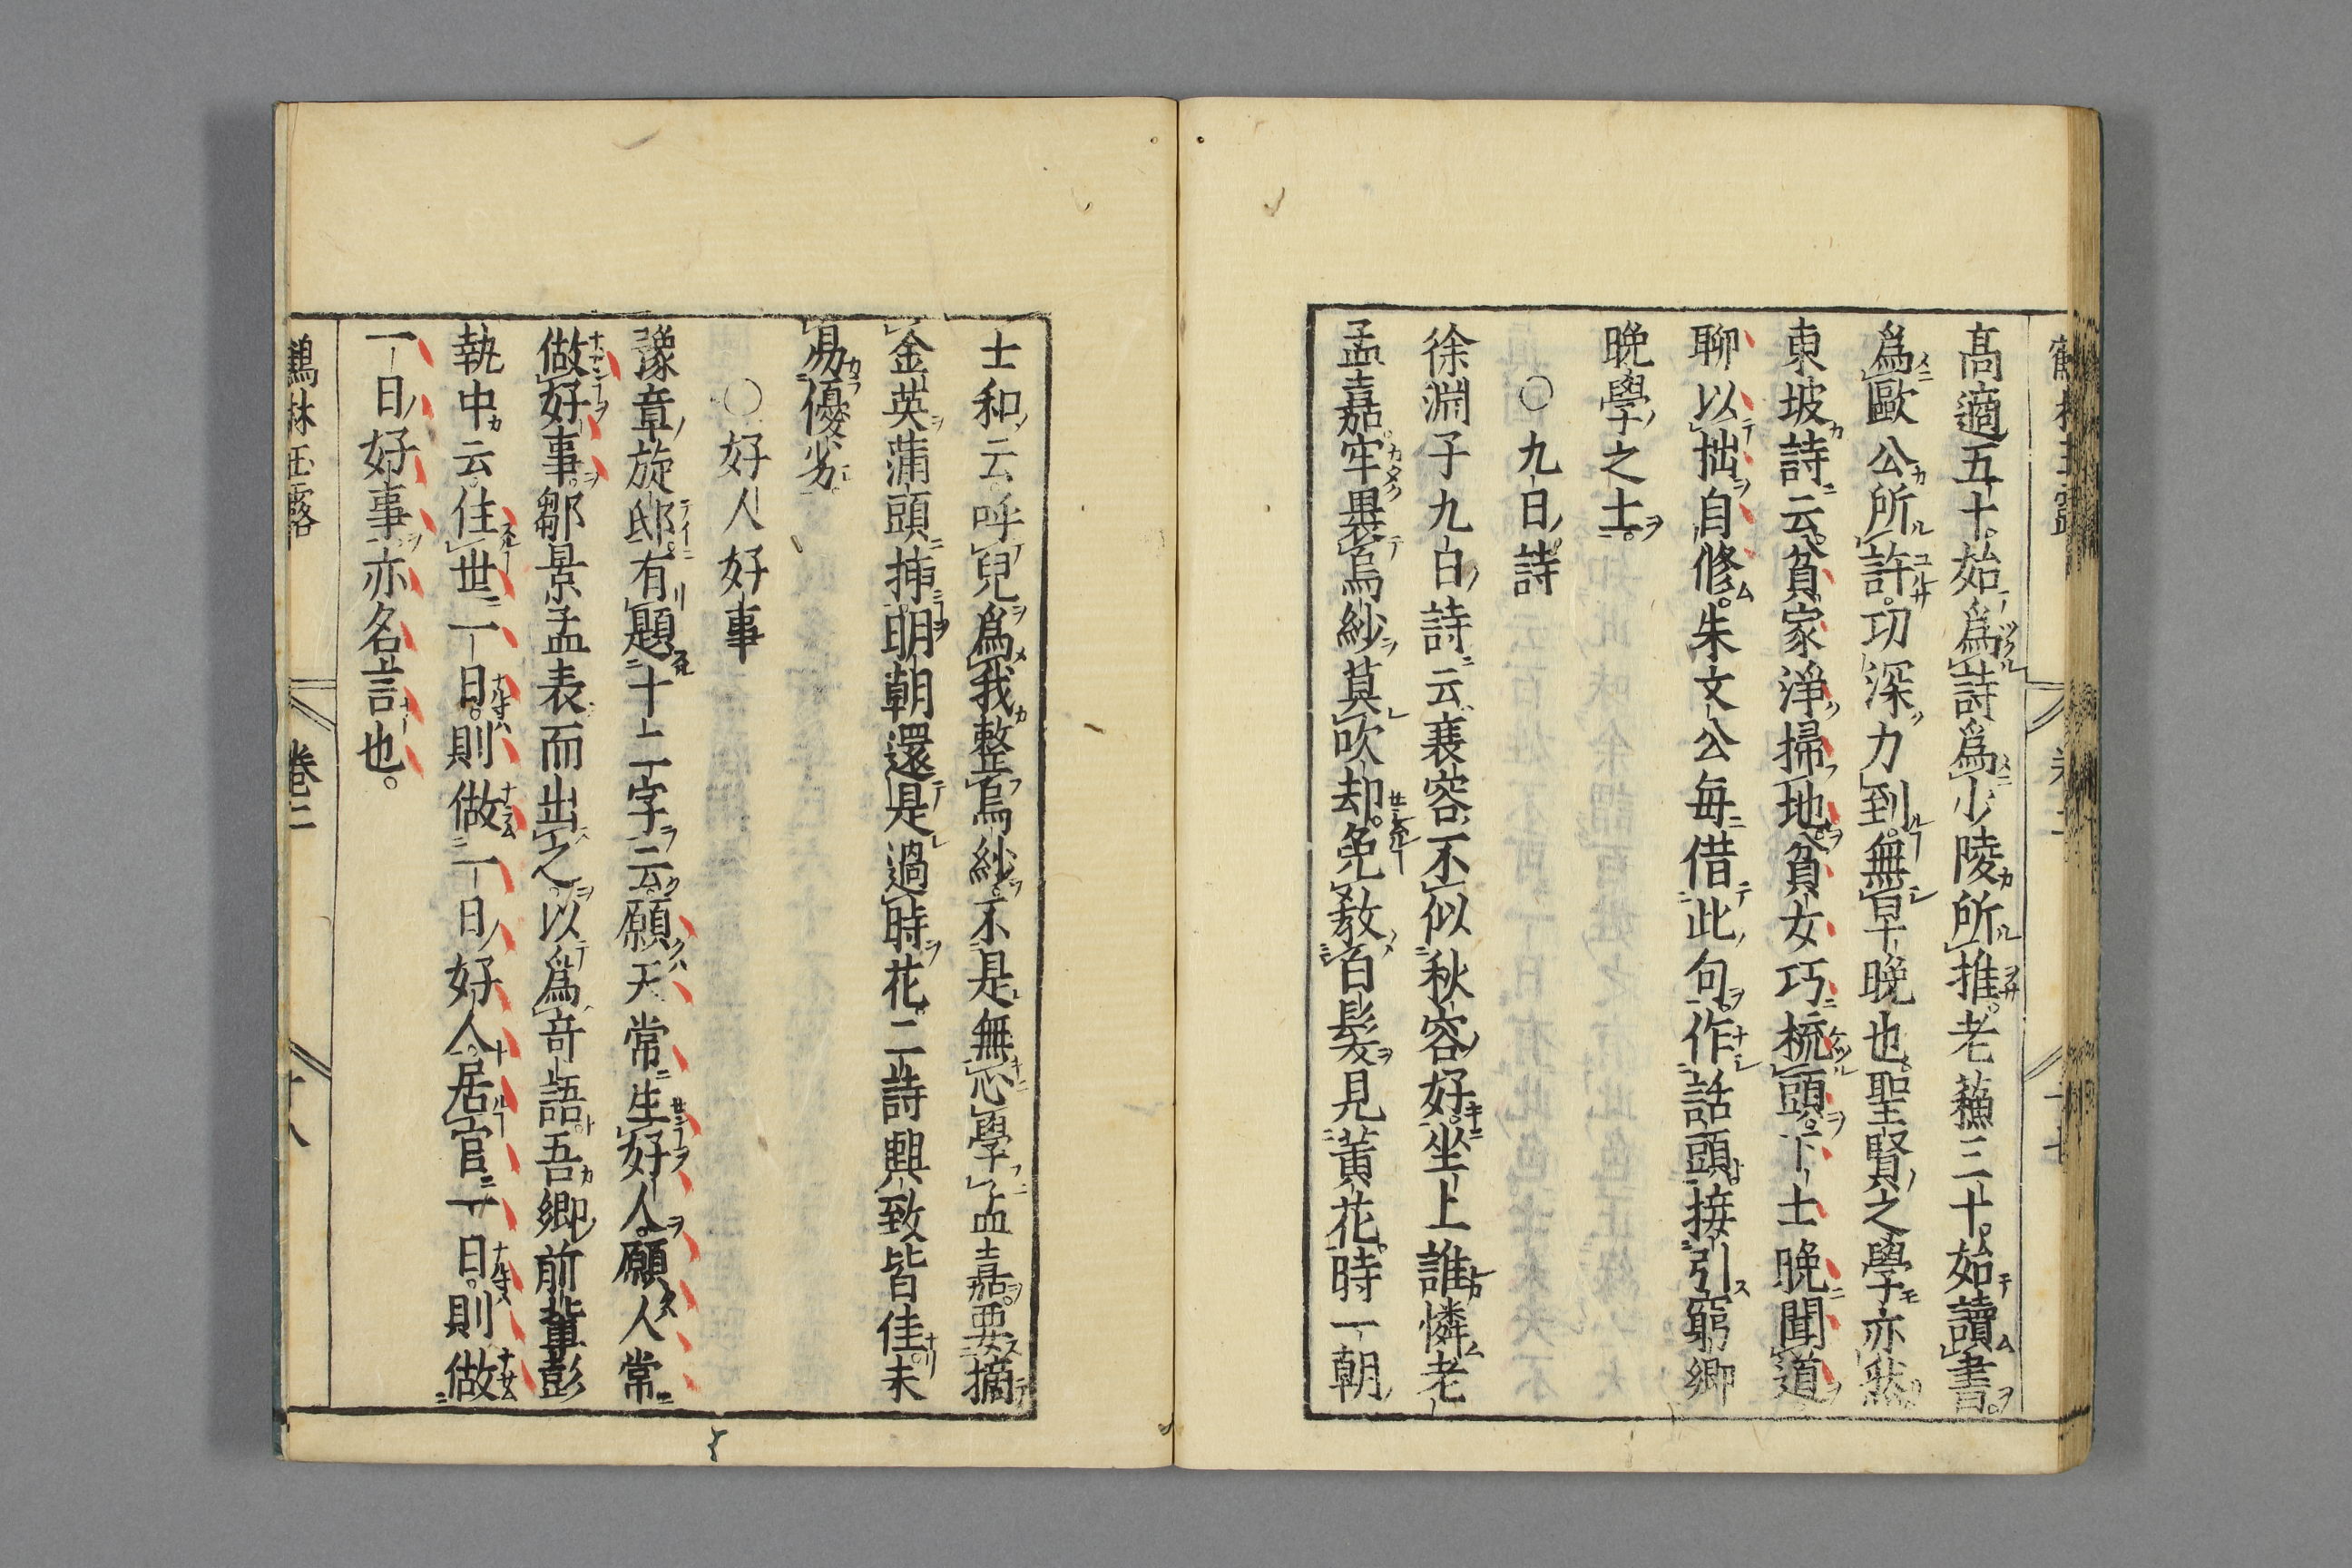 高適五十始爲詩爲少陵所推老蘓三十始讀書
爲歐公所許功深力到無早晚也聖賢之學亦然
東坡詩云貧家淨掃地貧女巧梳頭下士晚聞道
聊以拙自修朱文公每借此句作話頭接引窮鄉
晚學之士
○九日詩
徐淵子九日詩云衰容不似秋容好坐上誰憐老
孟嘉牢裹烏紗莫吹却免敎白髮見黃花時一朝
士和云呼兒爲我整烏紗不是無心學孟嘉要摘
金英蒲頭揷明朝還是過時花二詩興致皆佳未
易優劣
○好人好事
豫章旋邸有題十二字云願天常生好人願人常
做好事鄒景孟表而出之以爲竒語吾鄉前輩彭
執中云住世一日則做一日好人居官一日則做
一日好事亦名言也
鶴林玉露 卷二 十八